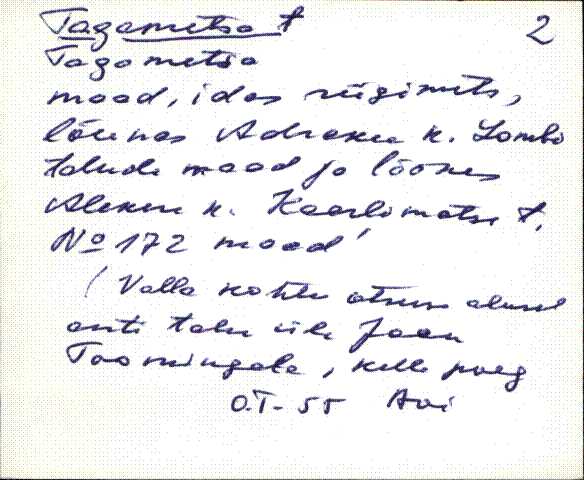 Tagametsa t 2
Tagametsa
maad, idas riigimets,
lõunas Adraku k. Lombi
talude maad ja läänes
Aleküla k. Kaarlimatsi t.
No 172 maad
(Valla kohtu otsuse alusel
anti talu üle Jaan
Toomingale, kelle poeg
O.T. 55 Avi